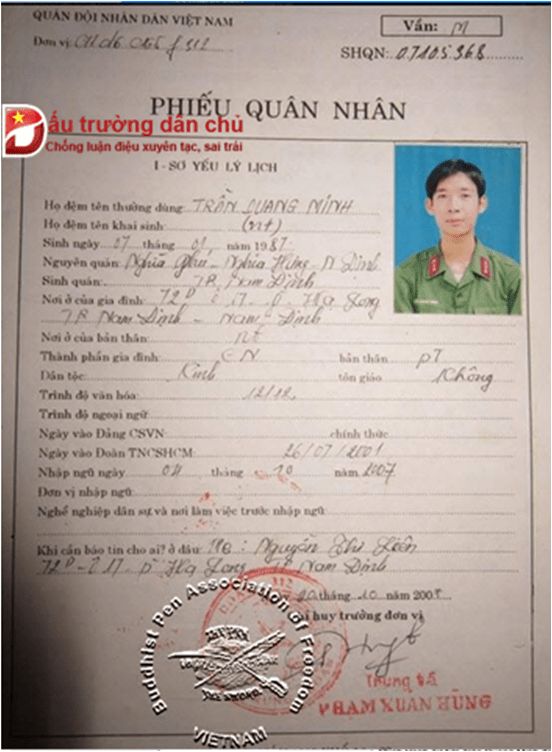 QUÂN ĐỘI NHÂN DÂN VIỆT NAM
Đơn vị:
Vần: M
SHQN: 07105368
PHIẾU QUÂN NHÂN
Đấu trường dân chủ
Chống luận điệu xuyên tạc, sai trái
I - SƠ YẾU LÝ LỊCH
Họ đệm tên thường dùng: TRẦN QUANG MINH
Họ đệm tên khai sinh: (nt)
Sinh ngày 07 tháng 01 năm 1987
Nguyên quán: Nghĩa Phú - Nghĩa Hưng - N Định
Sinh quán: TP Nam Định
Nơi ở của gia đình: 72P ô 17 - P Hạ Long
TP Nam Định - Nam Định
Nơi ở của bản thân: nt
Thành phần gia đình: CN bản thân PT
Dân tộc: Kinh tôn giáo Không
Trình độ văn hóa: 12/12
Trình độ ngoại ngữ:
Ngày vào Đảng CSVN: chính thức
Ngày vào Đoàn TNCSHCM: 26/07/2001
Nhập ngũ ngày 04 tháng 10 năm 2007
Đơn vị nhập ngũ:
Nghề nghiệp dân sự và nơi làm việc trước nhập ngũ
Khi cần báo tin cho ai? ở đâu: Mẹ: Nguyễn Thị Liên
72P - ô 17 - P Hạ Long - TP Nam Định
20 tháng 10 năm 200
Chỉ huy trưởng đơn vị
Trung tá
PHẠM XUÂN HÙNG
Buddhist Pen Association of Freedom
VIETNAM